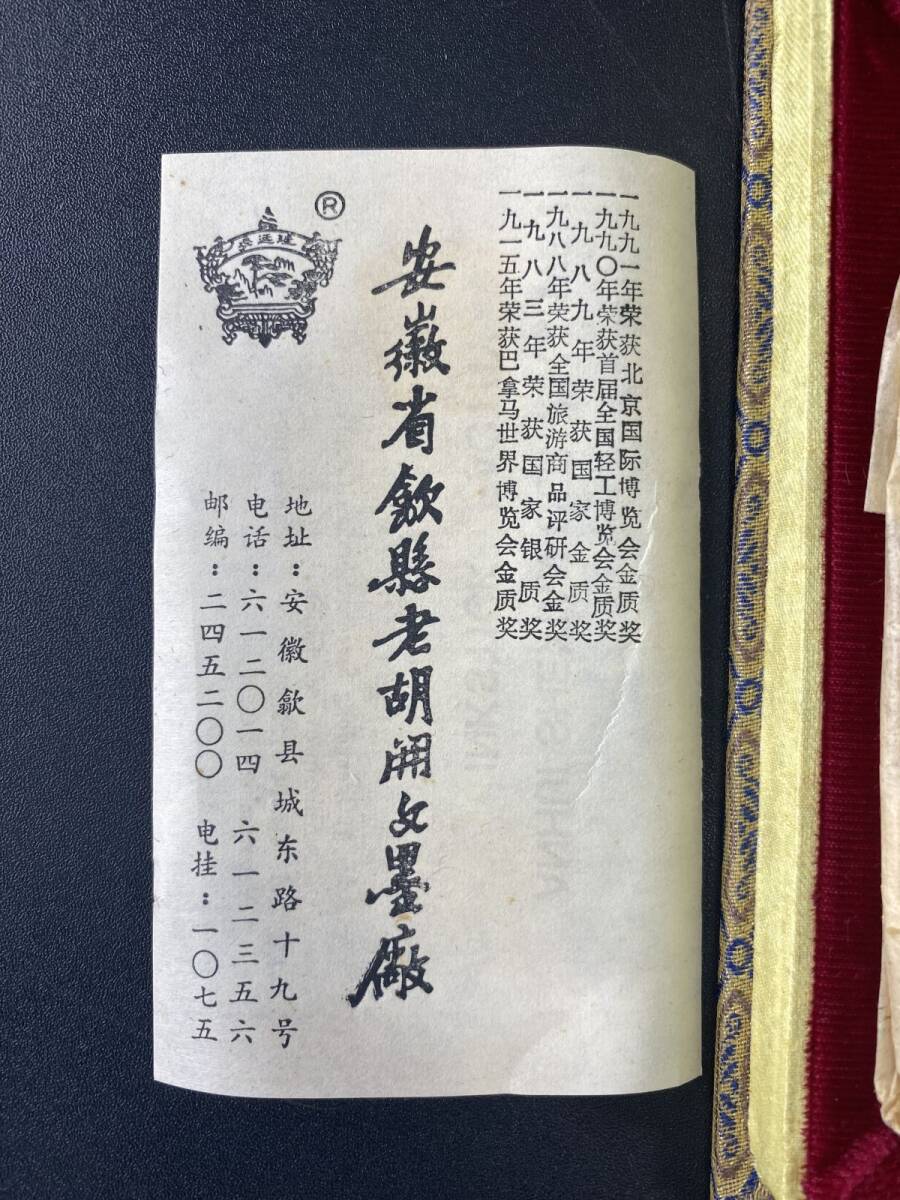 一九九一年荣获北京国际博览会金质奖
一九九〇年荣获首届全国轻工博览会金质奖
一九八九年荣获国家金质奖
一九八八年荣获全国旅游商品评研会金奖
一九八三年荣获国家银质奖
一九一五年荣获巴拿马世界博览会金质奖
安徽省歙縣老胡開文墨廠
地址：安徽歙县城东路十九号
电话：六一二〇一四 六一二三五六
邮编：二四五二〇〇 电挂：一〇七五
®